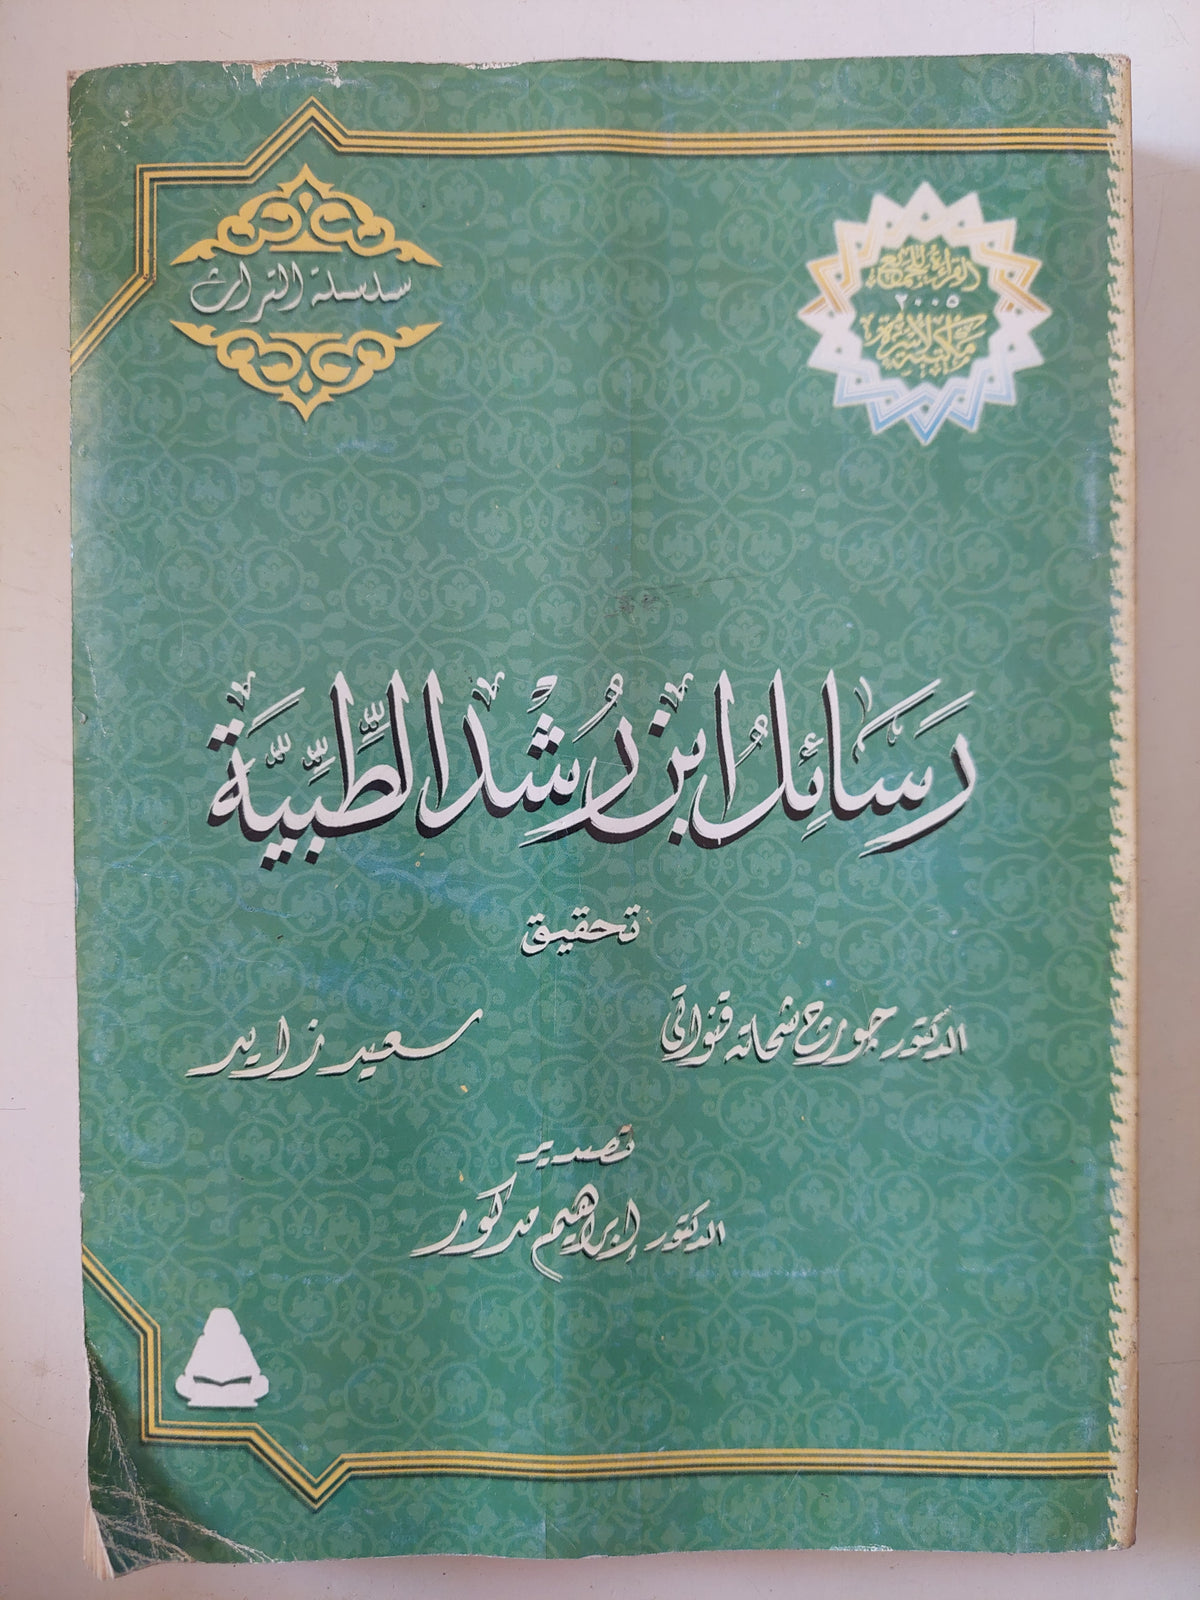 القراءة للجميع
٢٠٠٥
مكتبة الأسرة
سلسلة التراث
رَسَائِلُ ابْنِ رُشْدِ الطِّبِّيَّة
تحقيق
الدكتور جورج شحاته قنواتى
سعيد زايد
تصدير
الدكتور إبراهيم مدكور